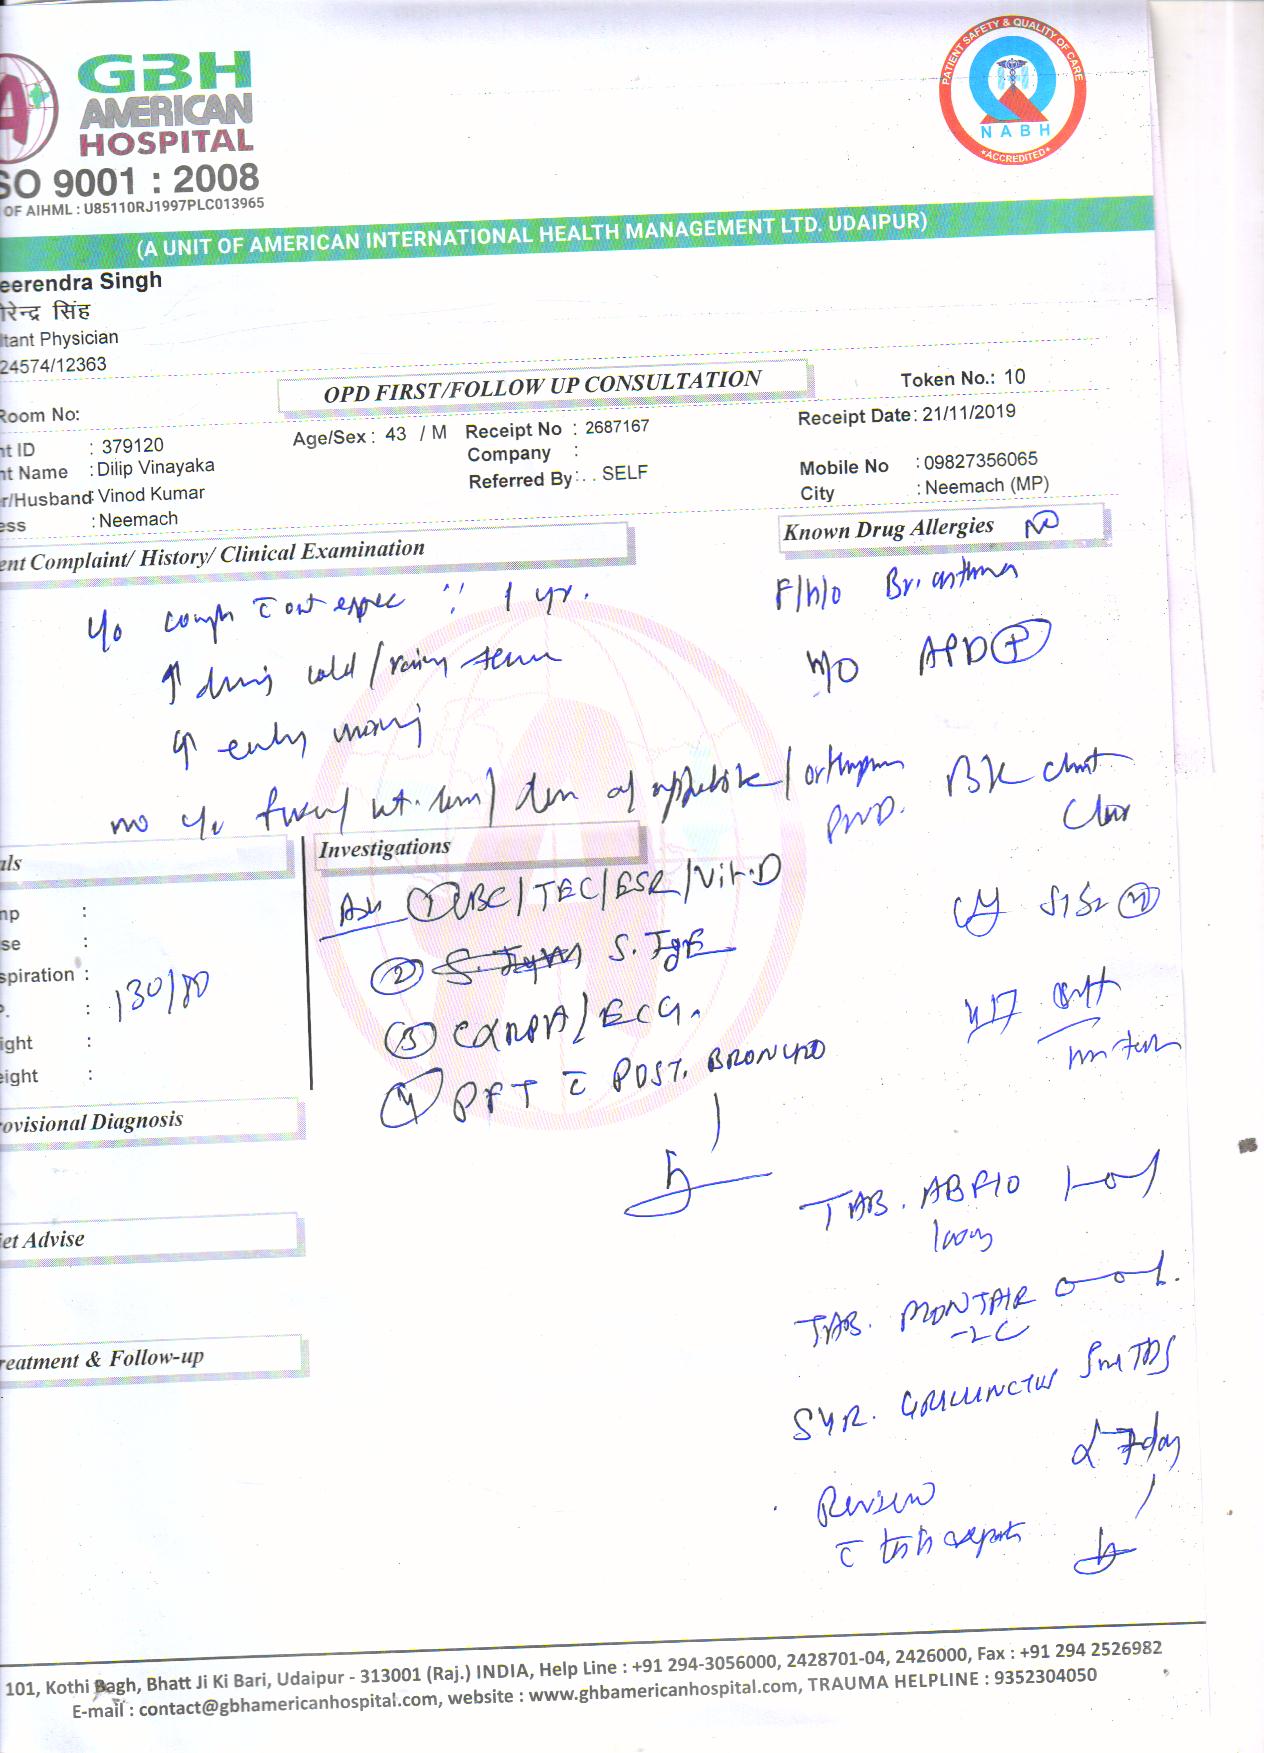 GBH
AMERICAN
HOSPITAL
SO 9001 : 2008
OF AIHML : U85110RJ1997PLC013965
PATIENT SAFETY & QUALITY OF CARE
NABH
ACCREDITED
(A UNIT OF AMERICAN INTERNATIONAL HEALTH MANAGEMENT LTD. UDAIPUR)
eerendra Singh
रेन्द्र सिंह
ltant Physician
24574/12363
OPD FIRST/FOLLOW UP CONSULTATION
Token No.: 10
Room No:
Receipt Date: 21/11/2019
nt ID : 379120
Age/Sex : 43 / M
Receipt No : 2687167
Company :
nt Name : Dilip Vinayaka
Mobile No : 09827356065
Referred By : . . SELF
r/Husband: Vinod Kumar
City : Neemach (MP)
ess : Neemach
ent Complaint/ History/ Clinical Examination
Known Drug Allergies NO
cough c̄ out 1 yr.
F/h/o Br. asthma
↑ during cold / rainy
H/O APD +
↑ early
no of appetite /
PND.
Clear
S1S2
als
Investigations
Adv ① CBC/TEC/ESR/Vit.D
mp :
② S. IgE
se :
spiration :
P. : 130/80
③ CXRPA/ECG.
ight :
eight :
④ PFT c̄ POST. BRONCHO
ovisional Diagnosis
TAB. ABFLO 1-0-1
100mg
iet Advise
TAB. MONTAIR 0-0-1.
-LC
reatment & Follow-up
SYR. TDS
7 day
Review
c̄ reports
101, Kothi Bagh, Bhatt Ji Ki Bari, Udaipur - 313001 (Raj.) INDIA, Help Line : +91 294-3056000, 2428701-04, 2426000, Fax : +91 294 2526982
E-mail : contact@gbhamericanhospital.com, website : www.ghbamericanhospital.com, TRAUMA HELPLINE : 9352304050